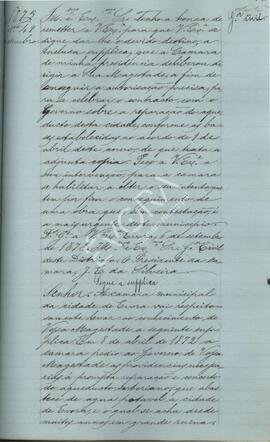 1872
Nº 49
Ill.mo e Ex.mo Sr. Tenho a honra de
remetter a V. Ex.ª para que V. Ex.ª se
digne dar lhe o devido destino, a
inclusa supplica, que a Camara
de minha presidencia deliberou di-
rigir a Sua Magestade, a fim de
conseguir a autorisação precisa,
para celebrar o contracto com o
Governo sobre a reparação do aque
ducto desta cidade, conforme as ba-
ses estabelecidas no accordo de 8 de
abril deste anno, de que trata a
adjunta copia. Peço a V. Ex.ª
a sua intervenção, para a camara
se habilitar, a obter
tem por fim o conseguimento de
uma obra que sem contestação, é
a mais urgente deste municipio.
D.s G.e a V. Ex.ª Evora, 7 de setembro
de 1872. Ill.mo e Ex.mo Sr. G. Civil
deste Districto. O Presidente da Ca-
mara, J. C. da Silveira
Segue a supplica
Senhor. A Camara municipal
da cidade de Evora vai respeitosa-
mente levar ao conhecimento de
Vossa Magestade a seguinte sup-
plica. Em 8 de abril de 1872, a
camara pediu ao Governo de Vossa
Magestade as providencias necessa-
rias á prompta reparação e concerto
do aqueducto sertoriano, que abas-
tece de aguas potavel a cidade
de Evora, e o qual se acha desde
muitos annos em grande ruina.